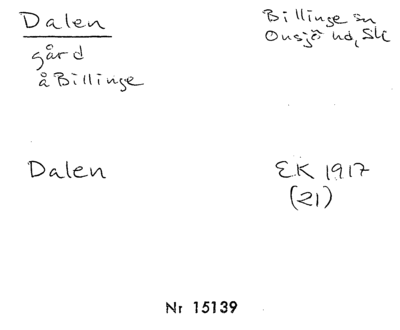 Dalen
gård
å Billinge
Billinge sn
Onsjö hd, Sk
Dalen
EK 1917
(21)
Nr 15139